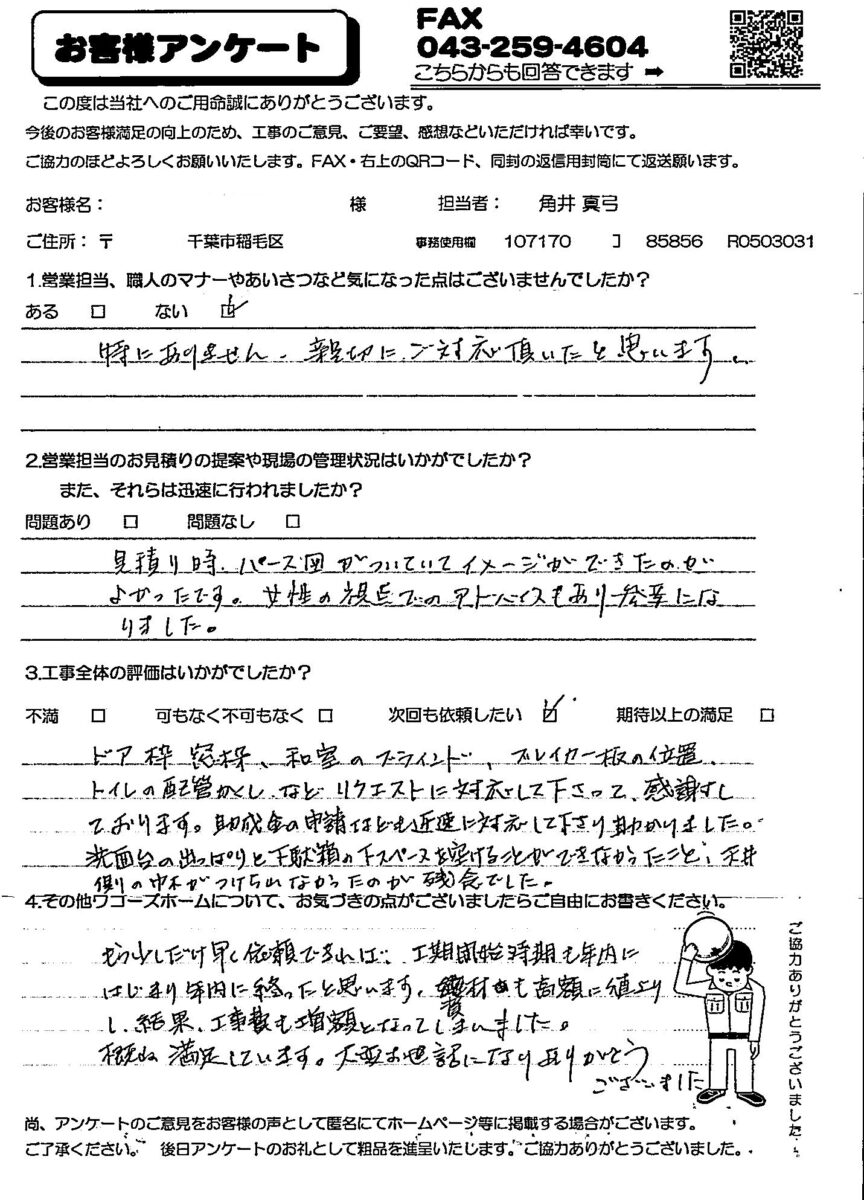 お客様アンケート
FAX
043-259-4604
こちらからも回答できます ➡
この度は当社へのご用命誠にありがとうございます。
今後のお客様満足の向上のため、工事のご意見、ご要望、感想などいただければ幸いです。
ご協力のほどよろしくお願いいたします。FAX・右上のQRコード、同封の返信用封筒にて返送願います。
お客様名： 様 担当者： 角井 真弓
ご住所：〒 千葉市稲毛区 事務使用欄 107170 コ 85856 R0503031
1.営業担当、職人のマナーやあいさつなど気になった点はございませんでしたか？
ある □ ない ☑
特にありません。親切にご対応頂いたと思います。
2.営業担当のお見積りの提案や現場の管理状況はいかがでしたか？
また、それらは迅速に行われましたか？
問題あり □ 問題なし □
見積り時、パース図がついていてイメージができたのが
よかったです。女性の視点でのアドバイスもあり参考にな
りました。
3.工事全体の評価はいかがでしたか？
不満 □ 可もなく不可もなく □ 次回も依頼したい ☑ 期待以上の満足 □
ドア枠 窓枠、和室のブラインド、ブレイカー板の位置、
トイレの配管かくし、などリクエストに対応して下さって、感謝し
ております。助成金の申請なども迅速に対応して下さり助かりました。
洗面台の出っぱりと下駄箱の下スペースを空けることができなかったこと、天井
側の巾木がつけられなかったのが残念でした。
4.その他ワコーズホームについて、お気づきの点がございましたらご自由にお書きください。
もう少しだけ早く依頼できれば、工期開始時期も年内に
はじまり年内に終ったと思います。資材も高額に値上り
し、結果、工事費も増額となってしまいました。
概ね満足しています。大変お世話になりありがとう
ございました
ご協力ありがとうございました
尚、アンケートのご意見をお客様の声として匿名にてホームページ等に掲載する場合がございます。
ご了承ください。 後日アンケートのお礼として粗品を進呈いたします。ご協力ありがとうございました。